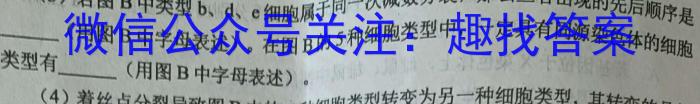 右图B中类型b、d、e细胞属于同一次减数分裂，
出现的先后顺序是
微信公众号关注：趣找答案
（用图B中字母表述）。在图B的5种细胞类型中，一定具有同源染色体的细胞
类型有______（用图B中字母表述）。
(4)着丝点分裂导致图B
细胞类型转变为另一种细胞类型，其转变的